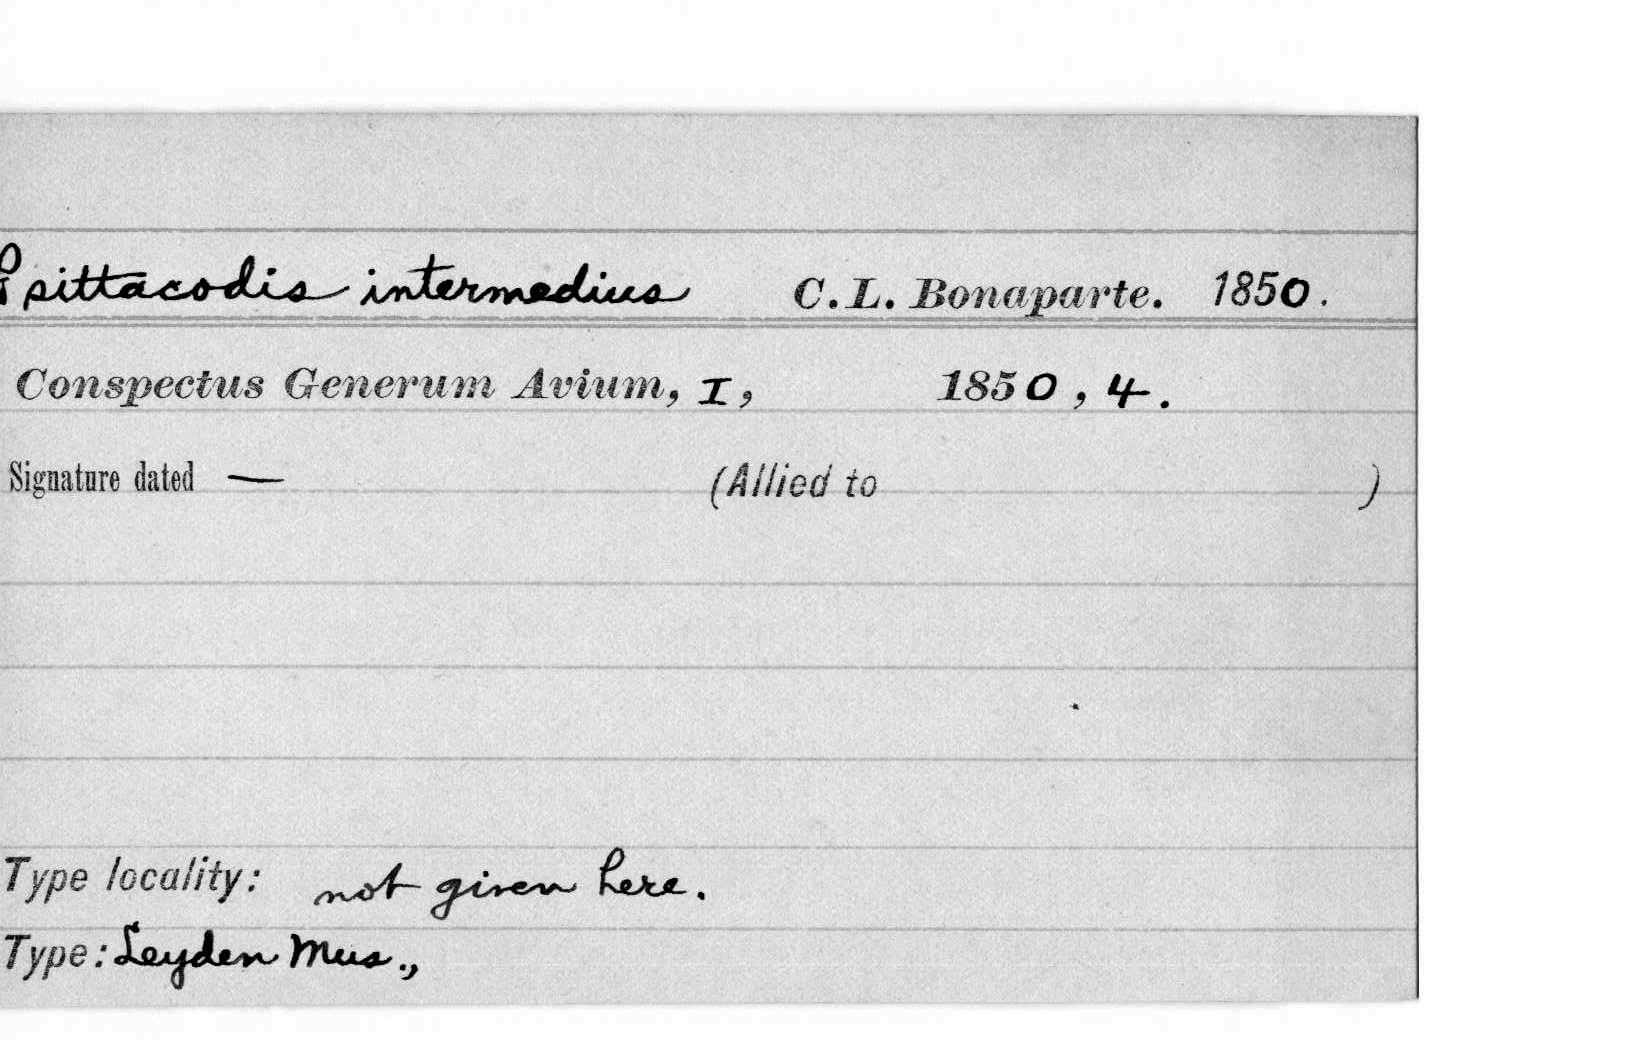 Psittacodis intermedius C. L. Bonaparte. 1850.
Conspectus Generum Avium, I, 1850, 4.
Signature dated — (Allied to )
Type locality: not given here.
Type: Leyden Mus.,